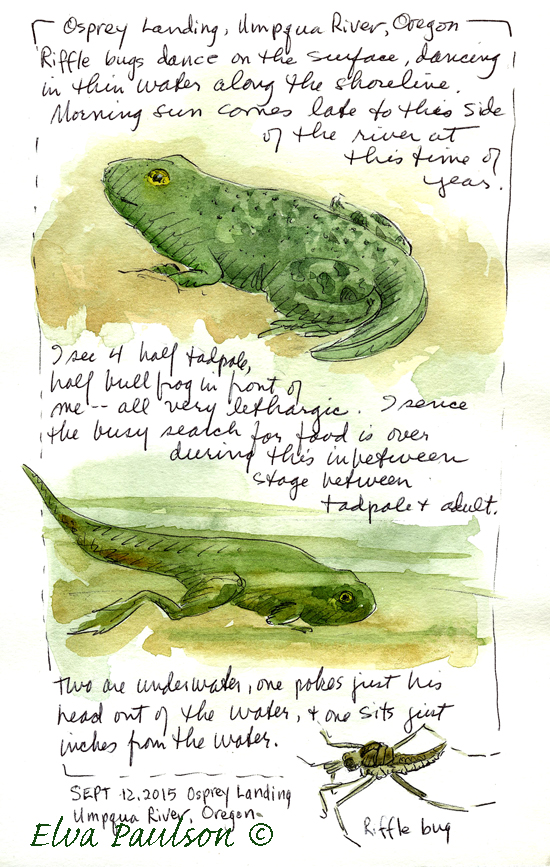 Osprey Landing, Umpqua River, Oregon
Riffle bugs dance on the surface, dancing
in thin water along the shoreline.
Morning sun comes late to this side
of the river at
this time of
year.
I see 4 half tadpole,
half bullfrog in front of
me -- all very lethargic. I sence
the busy search for food is over
during this inbetween
stage between
tadpole & adult.
Two are underwater, one pokes just his
head out of the water, & one sits just
inches from the water.
SEPT 12, 2015 Osprey Landing
Umpqua River, Oregon
Riffle bug
Elva Paulson ©